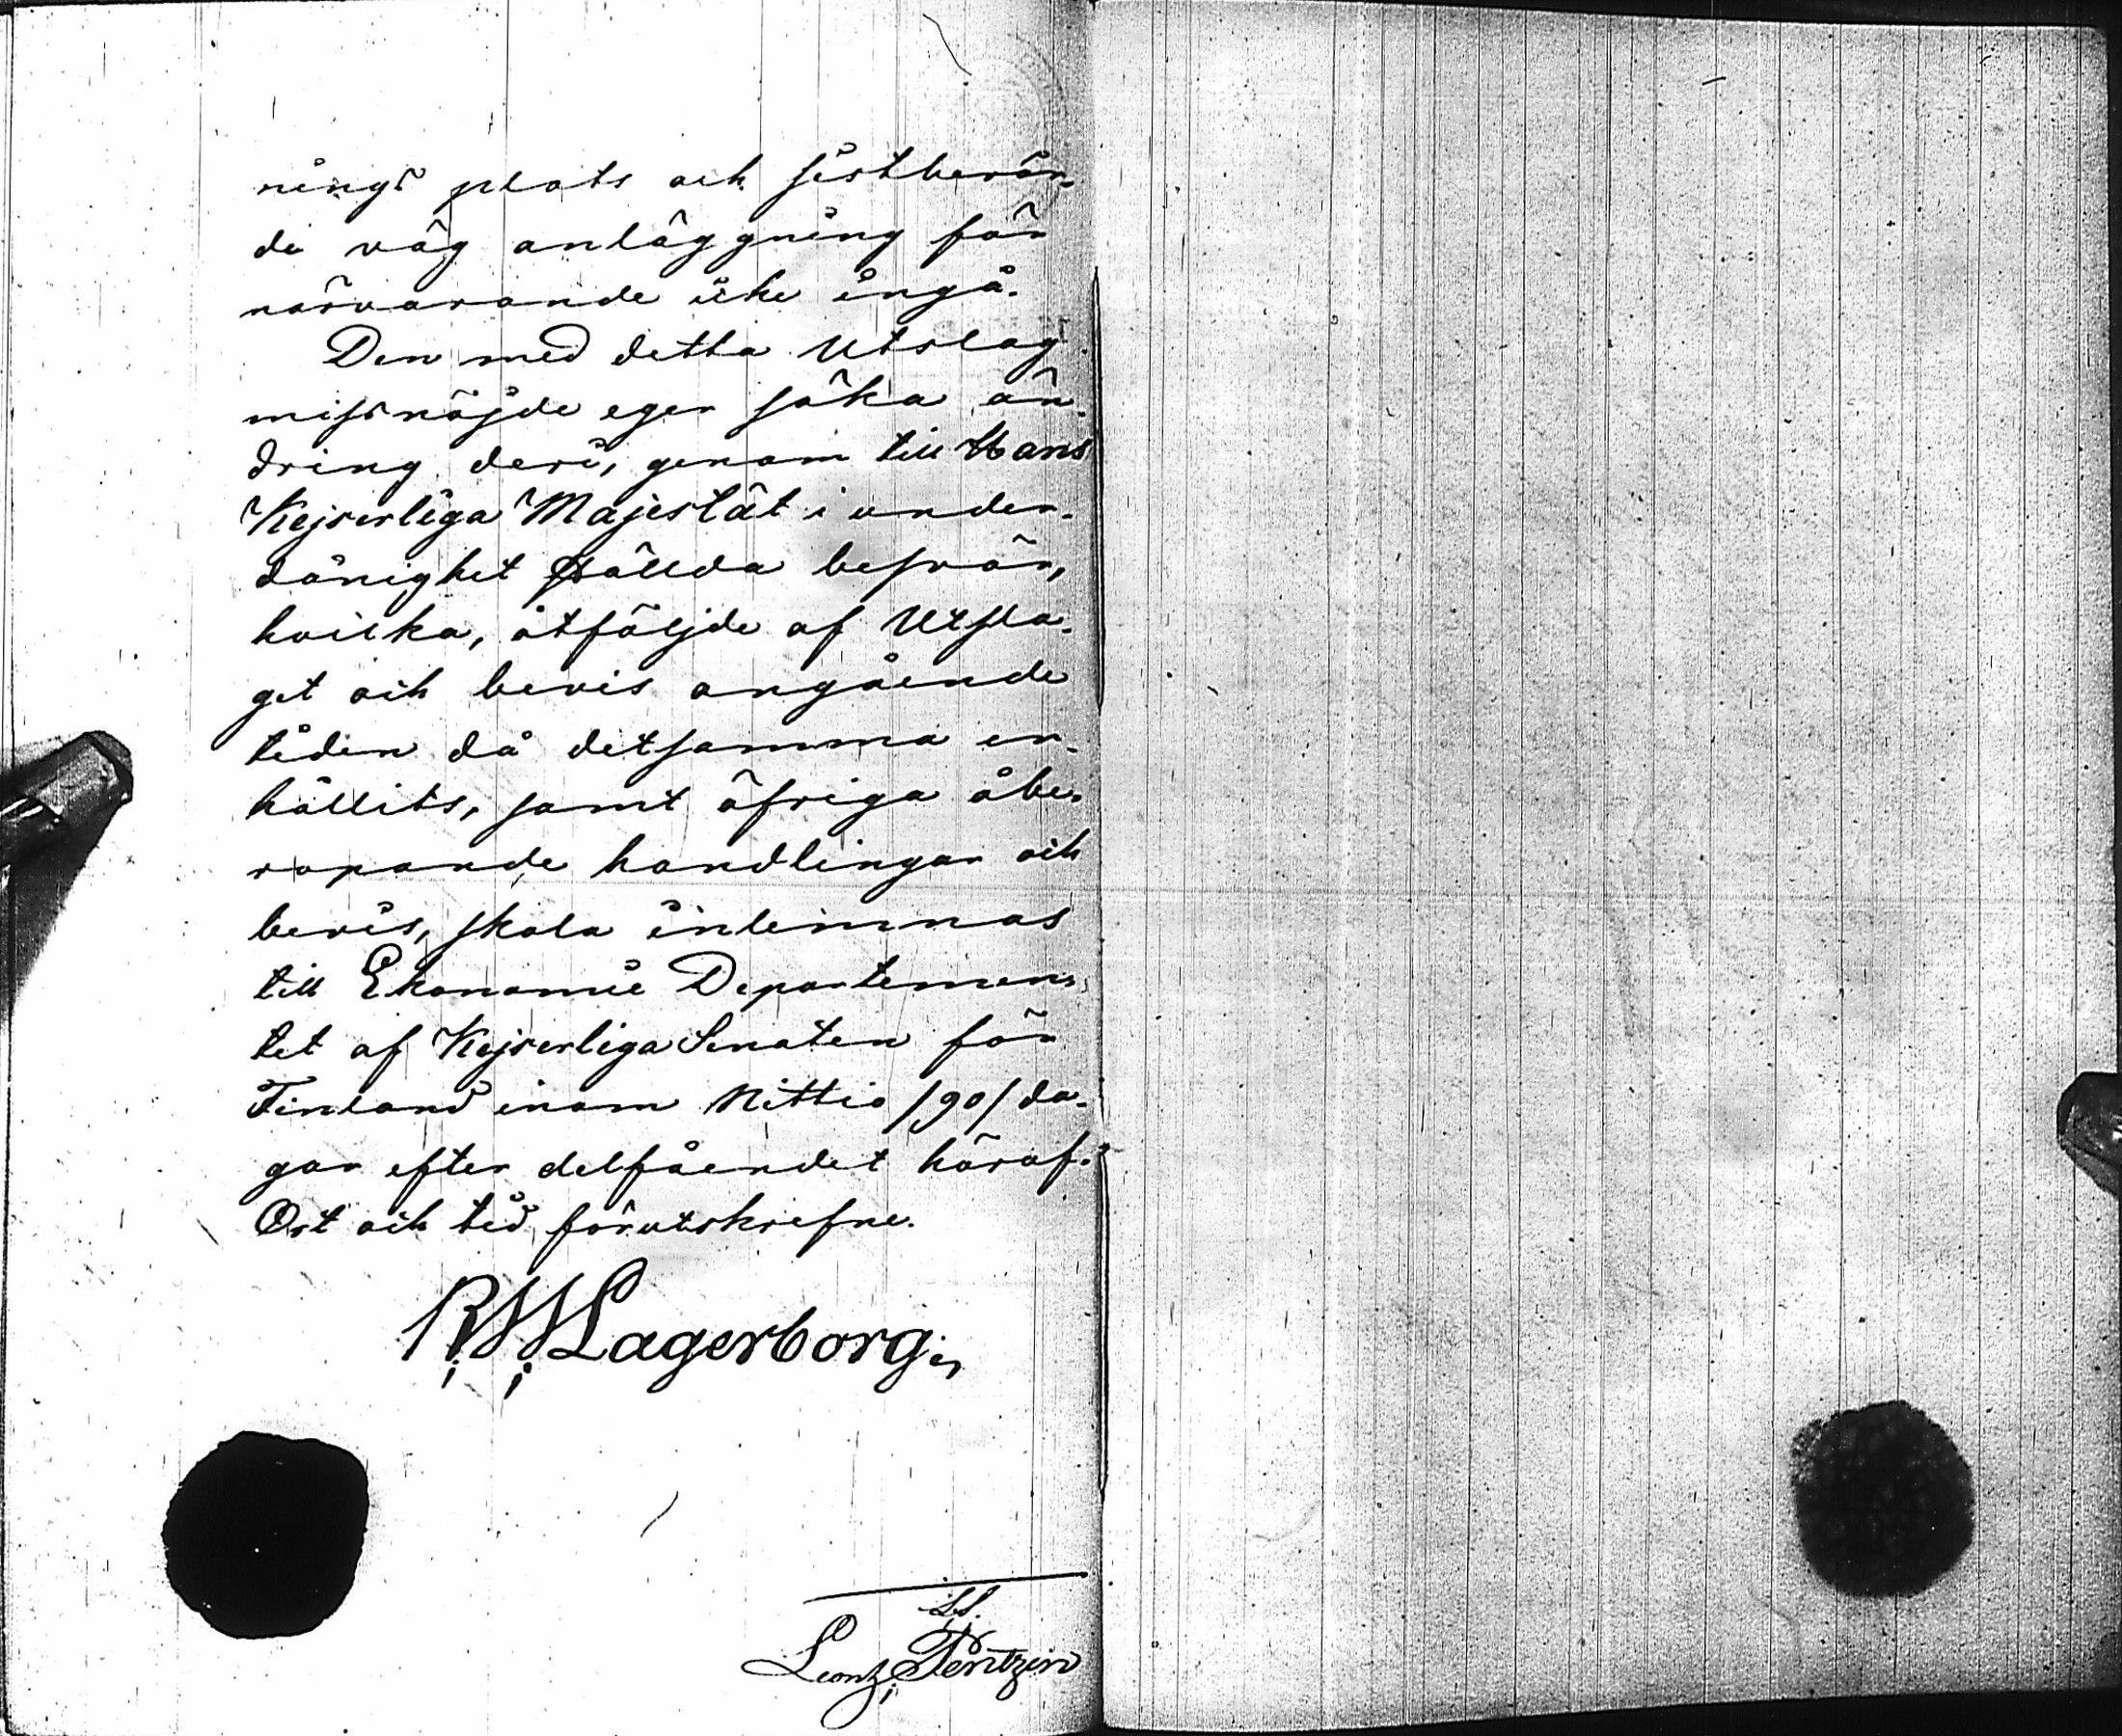 nings plats och sistberör-
de väg anläggning för
närvarande icke ingå.
Den med detta Utslag
missnöjde eger söka än-
dring deri, genom till Hans
Kejserliga Majestät i under-
dånighet ställda besvär,
hvilka, åtföljde af Utsla-
get och bevis angående
tiden då detsamma er-
hållits, samt öfriga åbe-
ropande handlingar och
bevis, skola inlemnas
till Ekonomie Departemen-
tet af Kejserliga Senaten för
Finland inom Nittio /90/ da-
gar efter delfåendet häraf.
Ort och tid förutskrefne.
R W Lagerborg
Pentzin